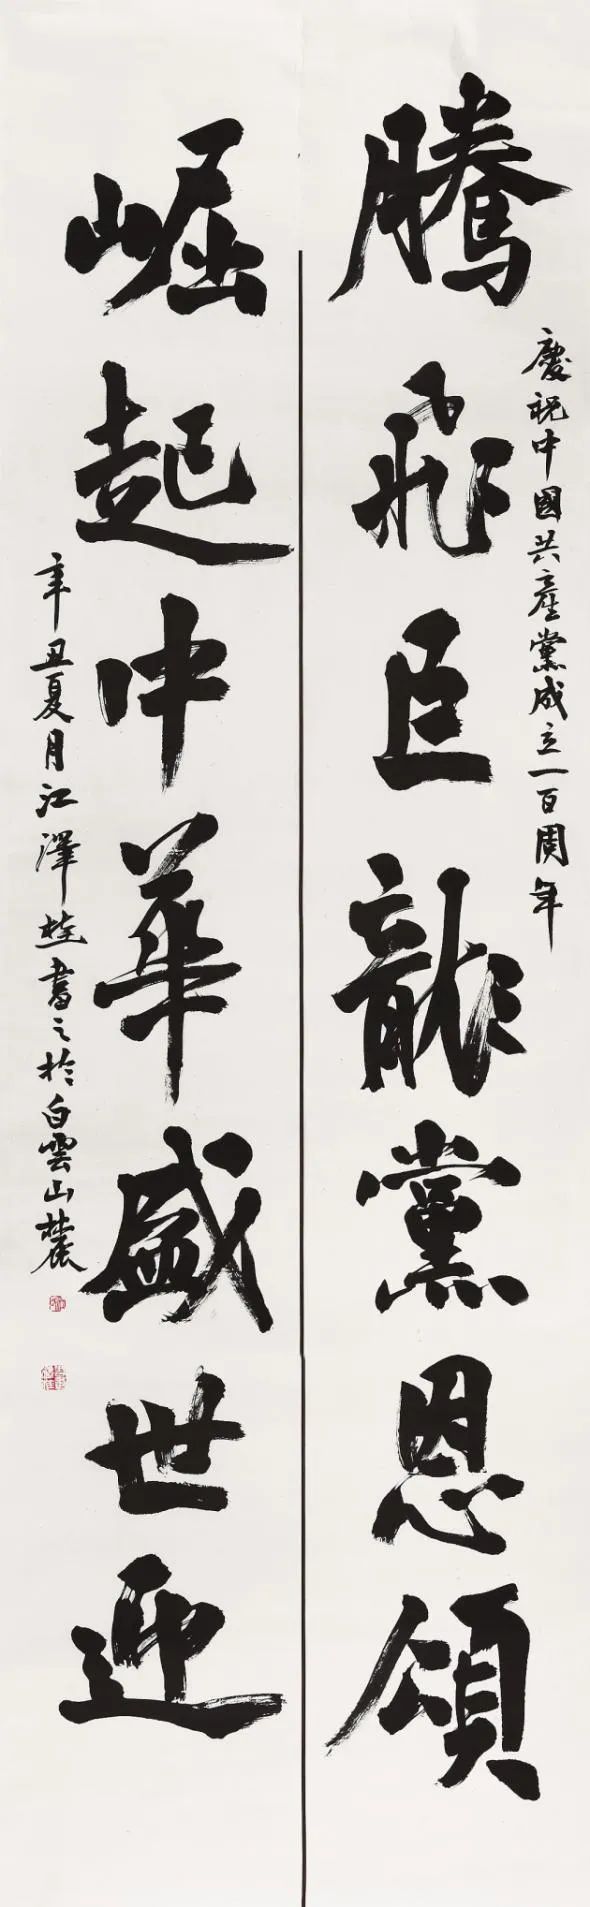 騰飛巨龍黨恩頌
慶祝中國共產黨成立一百周年
崛起中華盛世迎
辛丑夏月江澤桂書之於白雲山麓